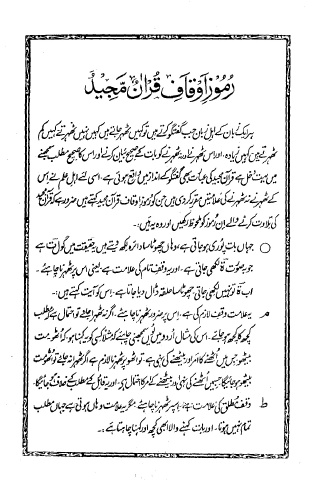 رموز اوقاف قرآن مجید
ہر ایک زبان کے اہل زبان جب گفتگو کرتے ہیں تو کہیں ٹھہر جاتے ہیں کہیں نہیں ٹھہرتے کہیں کم
ٹھہرتے ہیں کہیں زیادہ، اور اس ٹھہرنے اور نہ ٹھہرنے کو بات کے صحیح بیان کرنے اور اس کا صحیح مطلب سمجھنے
میں بہت دخل ہے، قرآن مجید کی عبارت بھی گفتگو کے انداز میں واقع ہوئی ہے، اسی لئے اہل علم نے اس
کے ٹھہرنے نہ ٹھہرنے کی علامتیں مقرر کر دی ہیں جن کو رموز اوقاف قرآن مجید کہتے ہیں ضرور ہے کہ قرآن مجید
کی تلاوت کرنے والے ان رموز کو ملحوظ رکھیں اور وہ یہ ہیں:-
○ جہاں بات پوری ہو جاتی ہے، وہاں چھوٹا سا دائرہ لکھ دیتے ہیں یہ حقیقت میں گول ت ہے
جو بصورت ۃ لکھی جاتی ہے، اور یہ وقف تام کی علامت ہے یعنی اس پر ٹھہرنا چاہئے،
اب ۃ تو نہیں لکھی جاتی چھوٹا سا حلقہ ڈال دیا جاتا ہے، اس کو آیت کہتے ہیں:-
م یہ علامت وقف لازم کی ہے، اس پر ضرور ٹھہرنا چاہئے اگر نہ ٹھہرا جائے تو احتمال ہے کہ مطلب
کچھ کا کچھ ہو جائے، اس کی مثال اردو میں یوں سمجھنی چاہئے کہ مثلاً کسی کو یہ کہنا ہو کہ اٹھو مت
بیٹھو جس میں اٹھنے کا امر اور بیٹھنے کی نہی ہے، تو اٹھو پر ٹھہرنا لازم ہے اگر ٹھہرا نہ جائے تو اٹھو مت
بیٹھو ہو جائیگا جس میں اٹھنے کی نہی اور بیٹھنے کے امر کا احتمال ہے، اور یہ قائل کے مطلب کے خلاف ہو جائیگا
ط وقف مطلق کی علامت ہے، اس پر ٹھہرنا چاہئے، مگر یہ علامت وہاں ہوتی ہے جہاں مطلب
تمام نہیں ہوتا، اور بات کہنے والا ابھی کچھ اور کہنا چاہتا ہے:-